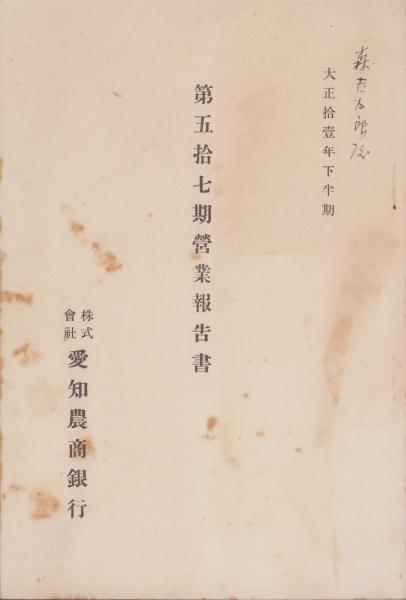 森吉太郎殿
大正拾壹年下半期
第五拾七期營業報告書
株式會社愛知農商銀行